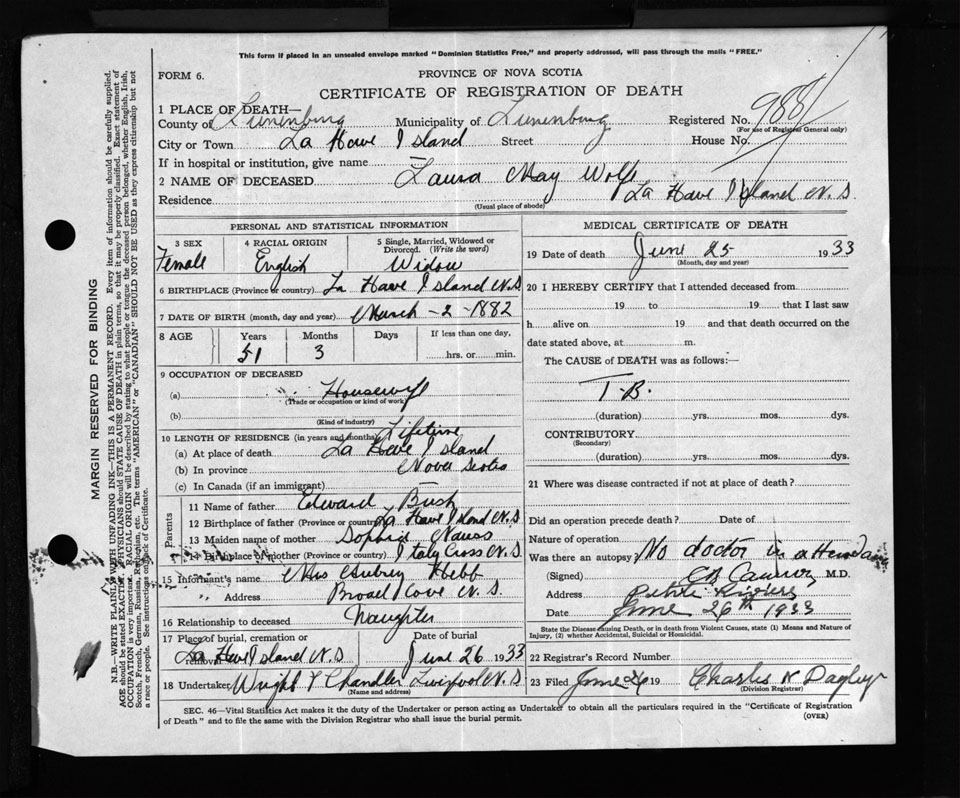 This form if placed in an unsealed envelope marked "Dominion Statistics Free," and properly addressed, will pass through the mails "FREE."
FORM 6.
PROVINCE OF NOVA SCOTIA
CERTIFICATE OF REGISTRATION OF DEATH
1 PLACE OF DEATH—
County of Lunenburg Municipality of Lunenburg Registered No. 988
(For use of Registrar General only)
City or Town La Have Island Street House No.
If in hospital or institution, give name
2 NAME OF DECEASED Laura May Wolfe
Residence La Have Island N.S
(Usual place of abode)
MARGIN RESERVED FOR BINDING
N.B.—WRITE PLAINLY WITH UNFADING INK—THIS IS A PERMANENT RECORD. Every item of information should be carefully supplied.
AGE should be stated EXACTLY. PHYSICIANS should STATE CAUSE OF DEATH in plain terms, so that it may be properly classified. Exact statement of
OCCUPATION is very important. RACIAL ORIGIN will be described by stating to what people or tongue the deceased person belonged, whether English, Irish,
Scotch, French, German, Russian, Ruthenian, etc. The terms "AMERICAN" or "CANADIAN" SHOULD NOT BE USED as they express citizenship but not
a race or people. See instructions on back of Certificate.
PERSONAL AND STATISTICAL INFORMATION
3 SEX 4 RACIAL ORIGIN 5 Single, Married, Widowed or
Divorced. (Write the word)
Female English Widow
6 BIRTHPLACE (Province or country) La Have Island N.S
7 DATE OF BIRTH (month, day and year) March - 2 - 1882
8 AGE Years Months Days If less than one day,
51 3 hrs. or min.
9 OCCUPATION OF DECEASED
(a) Housewife
(Trade or occupation or kind of work)
(b)
(Kind of industry)
10 LENGTH OF RESIDENCE (in years and months) Lifetime
(a) At place of death La Have Island
(b) In province Nova Scotia
(c) In Canada (if an immigrant)
Parents
11 Name of father Edward Bush
12 Birthplace of father (Province or country) La Have Island N.S
13 Maiden name of mother Sophia Nauss
14 Birthplace of mother (Province or country) Italy Cross N.S.
15 Informant's name Mrs Aubrey Hebb
" Address Broad Cove N.S.
16 Relationship to deceased Daughter
17 Place of burial, cremation or removal Date of burial
La Have Island N.S June 26 1933
18 Undertaker Wright & Chandler Liverpool N.S
(Name and address)
MEDICAL CERTIFICATE OF DEATH
19 Date of death June 25 1933
(Month, day and year)
20 I HEREBY CERTIFY that I attended deceased from
19 to 19 that I last saw
h alive on 19 and that death occurred on the
date stated above, at m.
The CAUSE of DEATH was as follows:—
T.B.
(duration) yrs. mos. dys.
CONTRIBUTORY
(Secondary)
(duration) yrs. mos. dys.
21 Where was disease contracted if not at place of death?
Did an operation precede death? Date of
Nature of operation
Was there an autopsy No doctor in attendance
(Signed) M.D.
Address
Date June 26th 1933
State the Disease causing Death, or in death from Violent Causes, state (1) Means and Nature of
Injury, (2) whether Accidental, Suicidal or Homicidal.
22 Registrar's Record Number
23 Filed June 26 19 Charles N
(Division Registrar)
SEC. 46—Vital Statistics Act makes it the duty of the Undertaker or person acting as Undertaker to obtain all the particulars required in the "Certificate of Registration
of Death" and to file the same with the Division Registrar who shall issue the burial permit. (OVER)